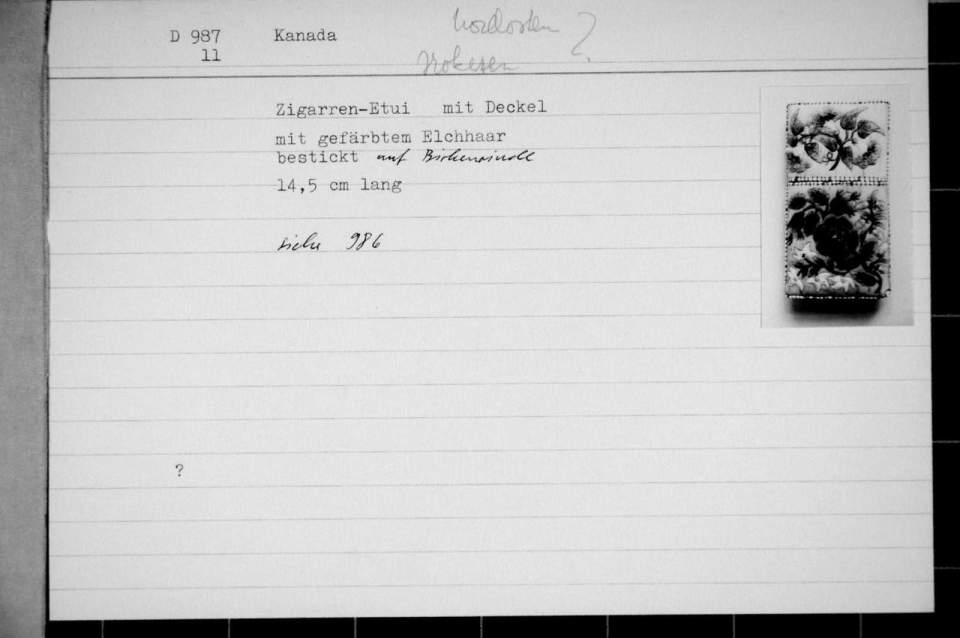 D 987 Kanada Nordosten ?
11 Irokesen
Zigarren-Etui mit Deckel
mit gefärbtem Elchhaar
bestickt auf Birkenrinde
14,5 cm lang
siehe 986
?